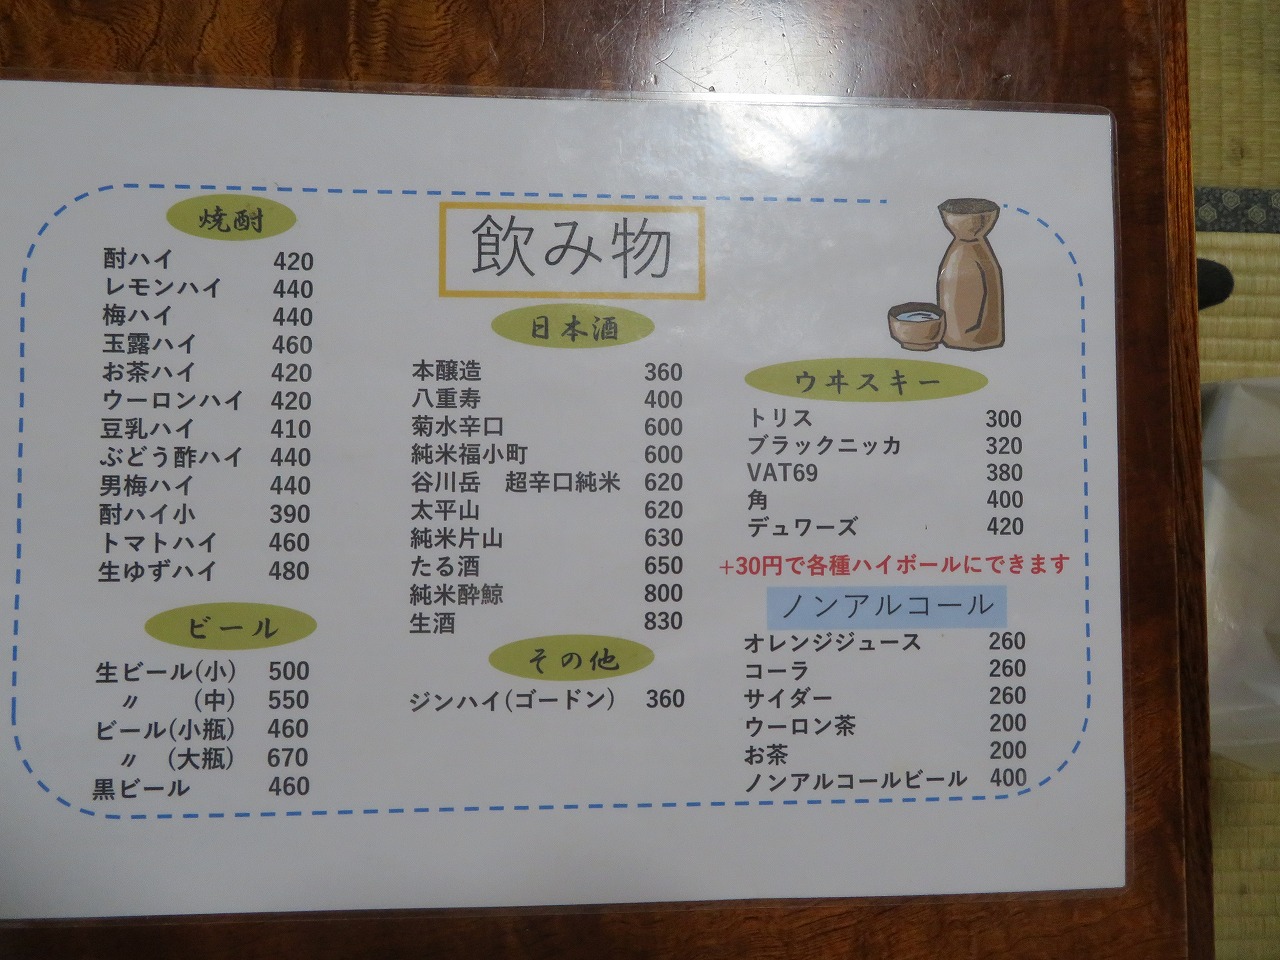 飲み物
焼酎
酎ハイ 420
レモンハイ 440
梅ハイ 440
玉露ハイ 460
お茶ハイ 420
ウーロンハイ 420
豆乳ハイ 410
ぶどう酢ハイ 440
男梅ハイ 440
酎ハイ小 390
トマトハイ 460
生ゆずハイ 480
ビール
生ビール(小) 500
〃 (中) 550
ビール(小瓶) 460
〃 (大瓶) 670
黒ビール 460
日本酒
本醸造 360
八重寿 400
菊水辛口 600
純米福小町 600
谷川岳 超辛口純米 620
太平山 620
純米片山 630
たる酒 650
純米酔鯨 800
生酒 830
その他
ジンハイ(ゴードン) 360
ウヰスキー
トリス 300
ブラックニッカ 320
VAT69 380
角 400
デュワーズ 420
+30円で各種ハイボールにできます
ノンアルコール
オレンジジュース 260
コーラ 260
サイダー 260
ウーロン茶 200
お茶 200
ノンアルコールビール 400